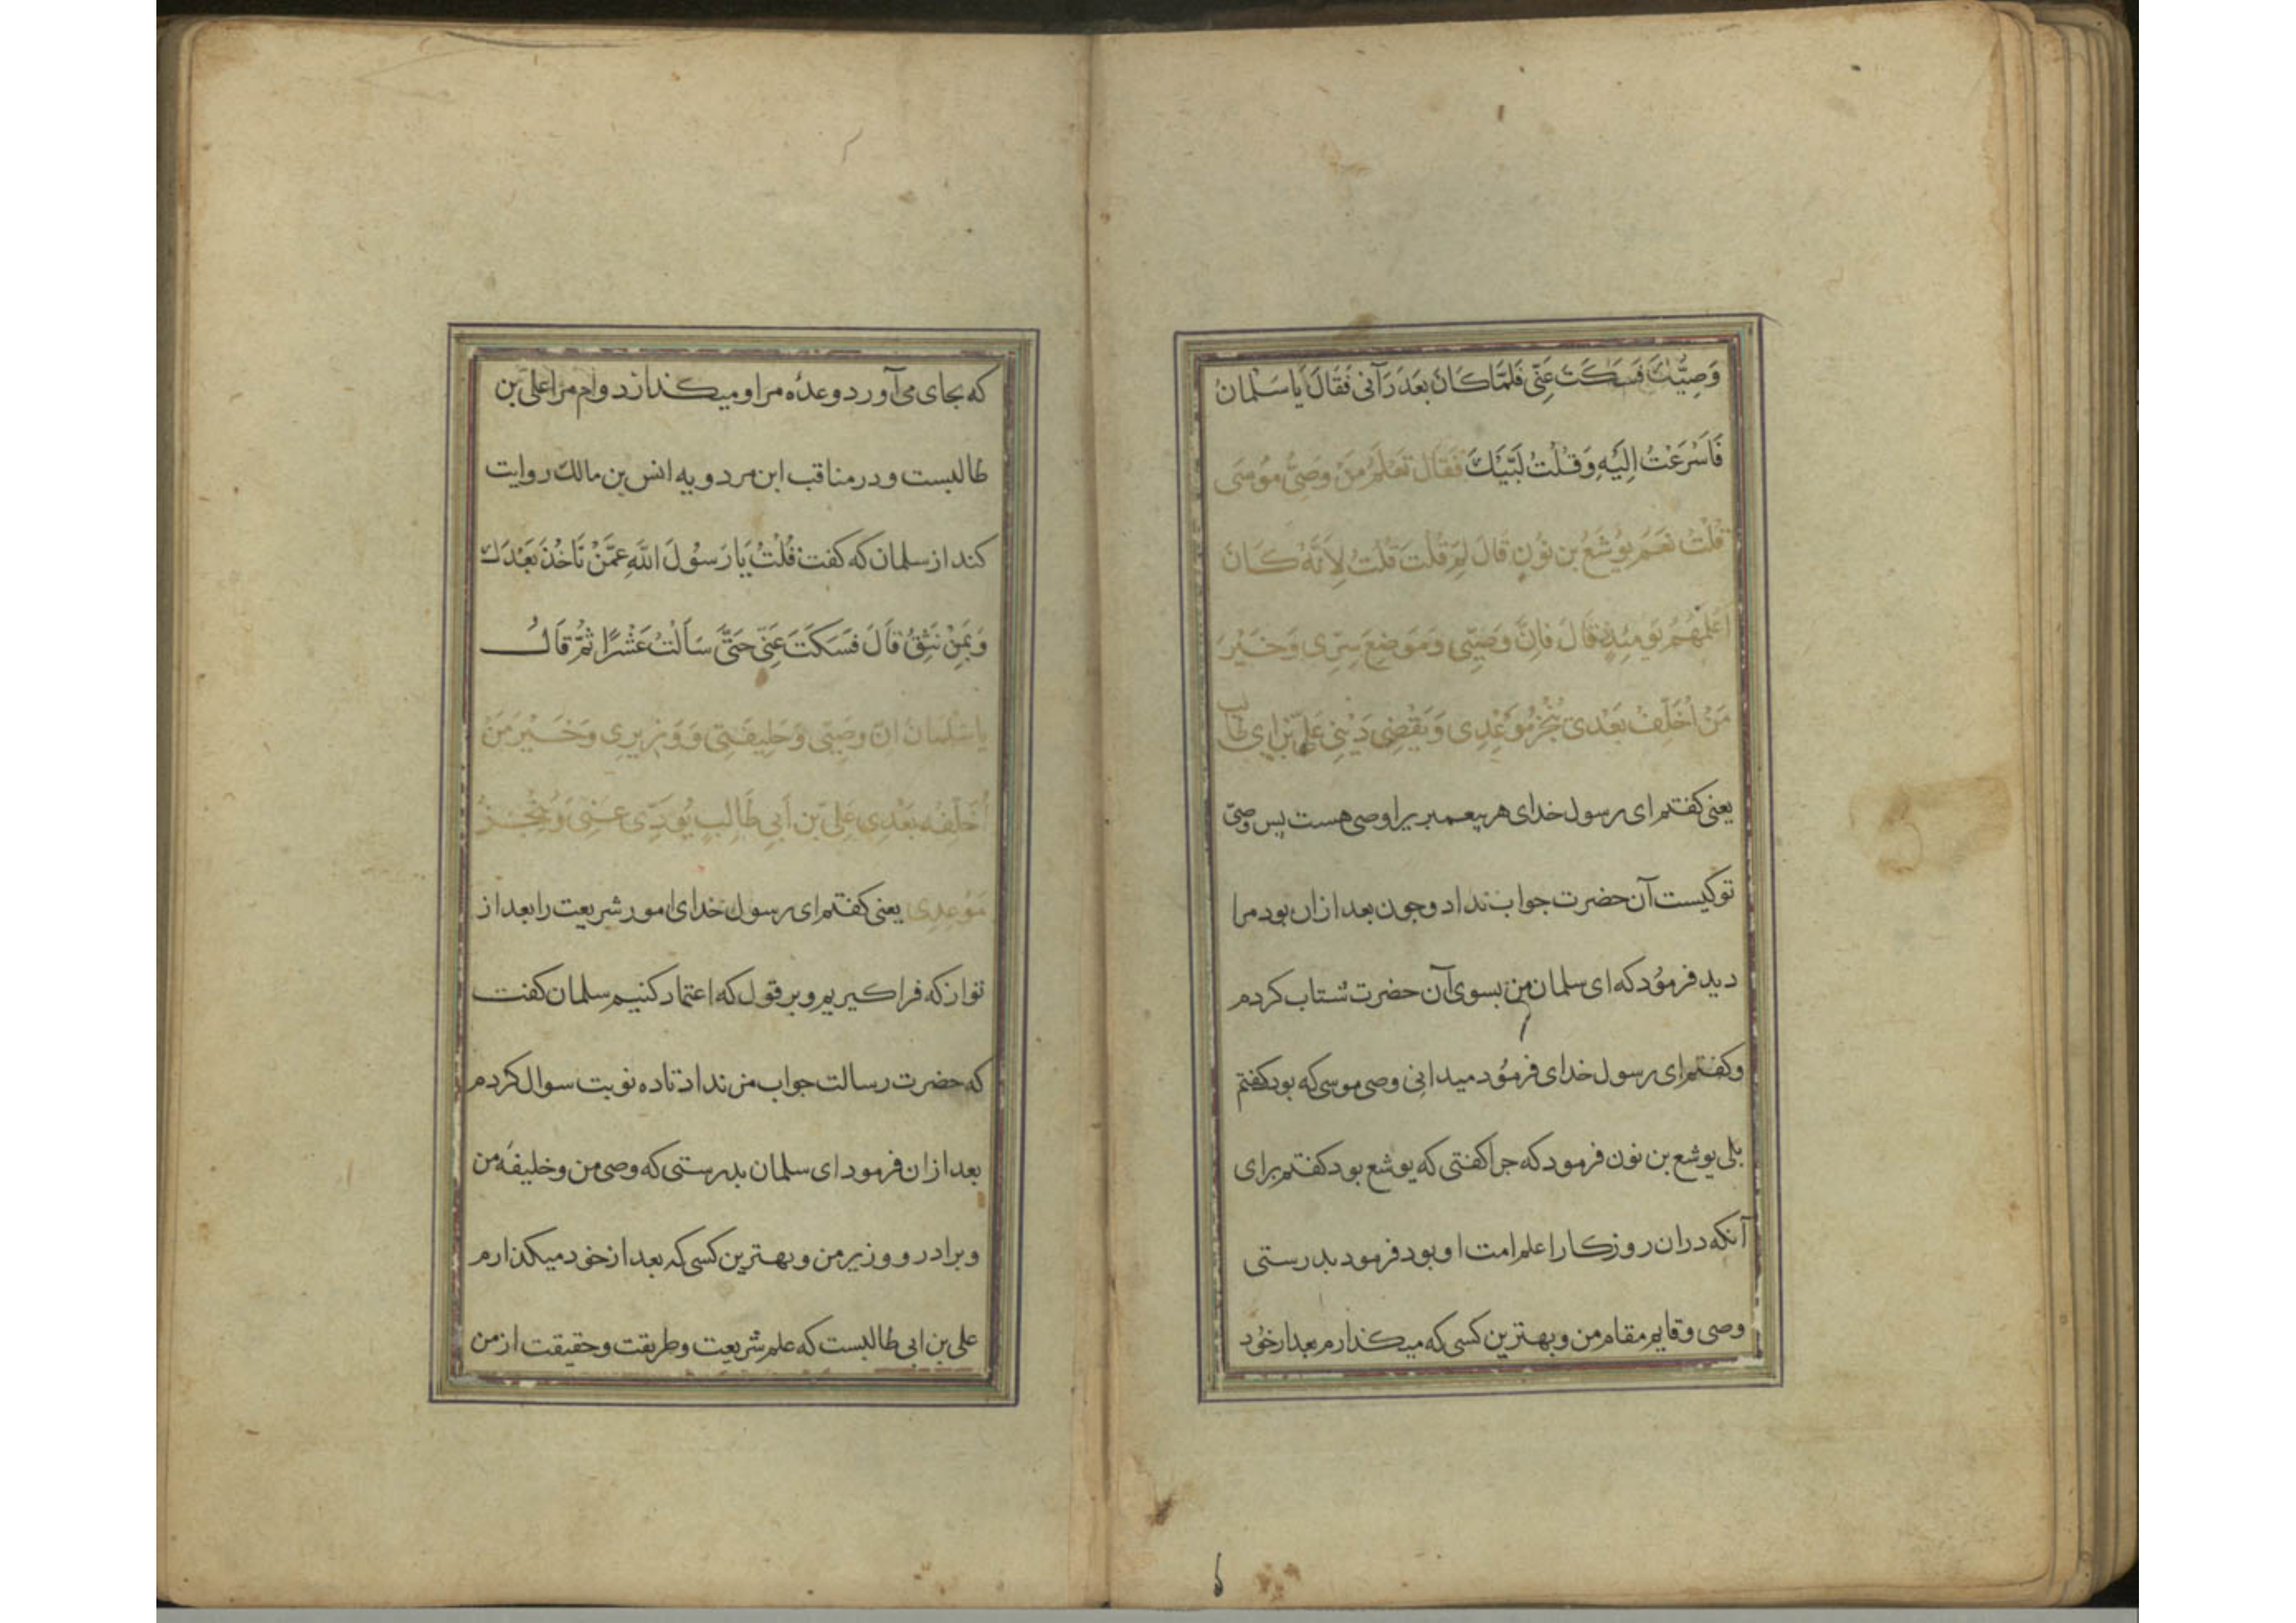 وَصِيُّكَ فَسَكَتَ عَنِّي فَلَمَّا كَانَ بَعْدَ رَآنِی فَقَالَ یَا سَلْمَانُ
فَاَسْرَعْتُ اِلَيْهِ وَقُلْتُ لَبَّيْكَ فَقَالَ تَعْلَمُ مَنْ وَصِيُّ مُوسَى
قُلْتُ نَعَمْ يُوشَعُ بن نُونٍ قَالَ لِمَ قُلْتَ قُلْتُ لِاَنَّهُ كَانَ
اَعْلَمَهُمْ يَوْمَئِذٍ قَالَ فَاِنَّ وَصِيِّی وَمَوْضِعَ سِرِّی وَخَيْرَ
مَنْ اُخَلِّفُ بَعْدِی يُنْجِزُ مَوْعِدِی وَيَقْضِی دَيْنِی عَلِیُّ بْنُ اَبِی طَالِبٍ
یعنی کفتم ای رسول خدای هر پیغمبریرا وصی هست پس وصیّ
تو کیست آن حضرت جواب نداد و جون بعد ازان بود مرا
دید فرمُود که ای سلمان من بسوی آن حضرت شتاب کردم
و کفتم ای رسول خدای فرمُود میدانی وصی موسی که بود کفتم
بلی یوشع بن نون فرمود که جرا کفتی که یوشع بود کفتم برای
آنکه دران روزکار اعلم امت او بود فرمود بدرستی
وصی و قایم مقام من و بهترین کسی که میکذارم بعد از خُود
که بجای می آورد وعدهٔ مرا و میکذارد وام مرا علی بن
طالبست و در مناقب ابن مردویه انس بن مالک روایت
کند از سلمان که کفت قُلْتُ يَا رَسُولَ اللّٰهِ عَمَّنْ نَاْخُذُ بَعْدَكَ
وَبِمَنْ نَثِقُ قَالَ فَسَكَتَ عَنِّي حَتَّى سَاَلْتُ عَشْرًا ثُمَّ قَالَ
يَا سَلْمَانُ اِنَّ وَصِيِّی وَخَلِيفَتِی وَوَزِيرِی وَخَيْرَ مَنْ
اُخَلِّفُهُ بَعْدِی عَلِیُّ بن اَبِی طَالِبٍ يُؤَدِّی عَنِّی وَيُنْجِزُ
مَوْعِدِی یعنی کفتم ای رسول خدای امور شریعت را بعد از
تو از که فرا کیریم و بر قول که اعتماد کنیم سلمان کفت
که حضرت رسالت جواب من نداد تا ده نوبت سوال کردم
بعد ازان فرمود ای سلمان بدرستی که وصی من و خلیفهٔ من
و برادر و وزیر من و بهترین کسی که بعد از خود میکذارم
علی بن ابی طالبست که علم شریعت و طریقت و حقیقت از من